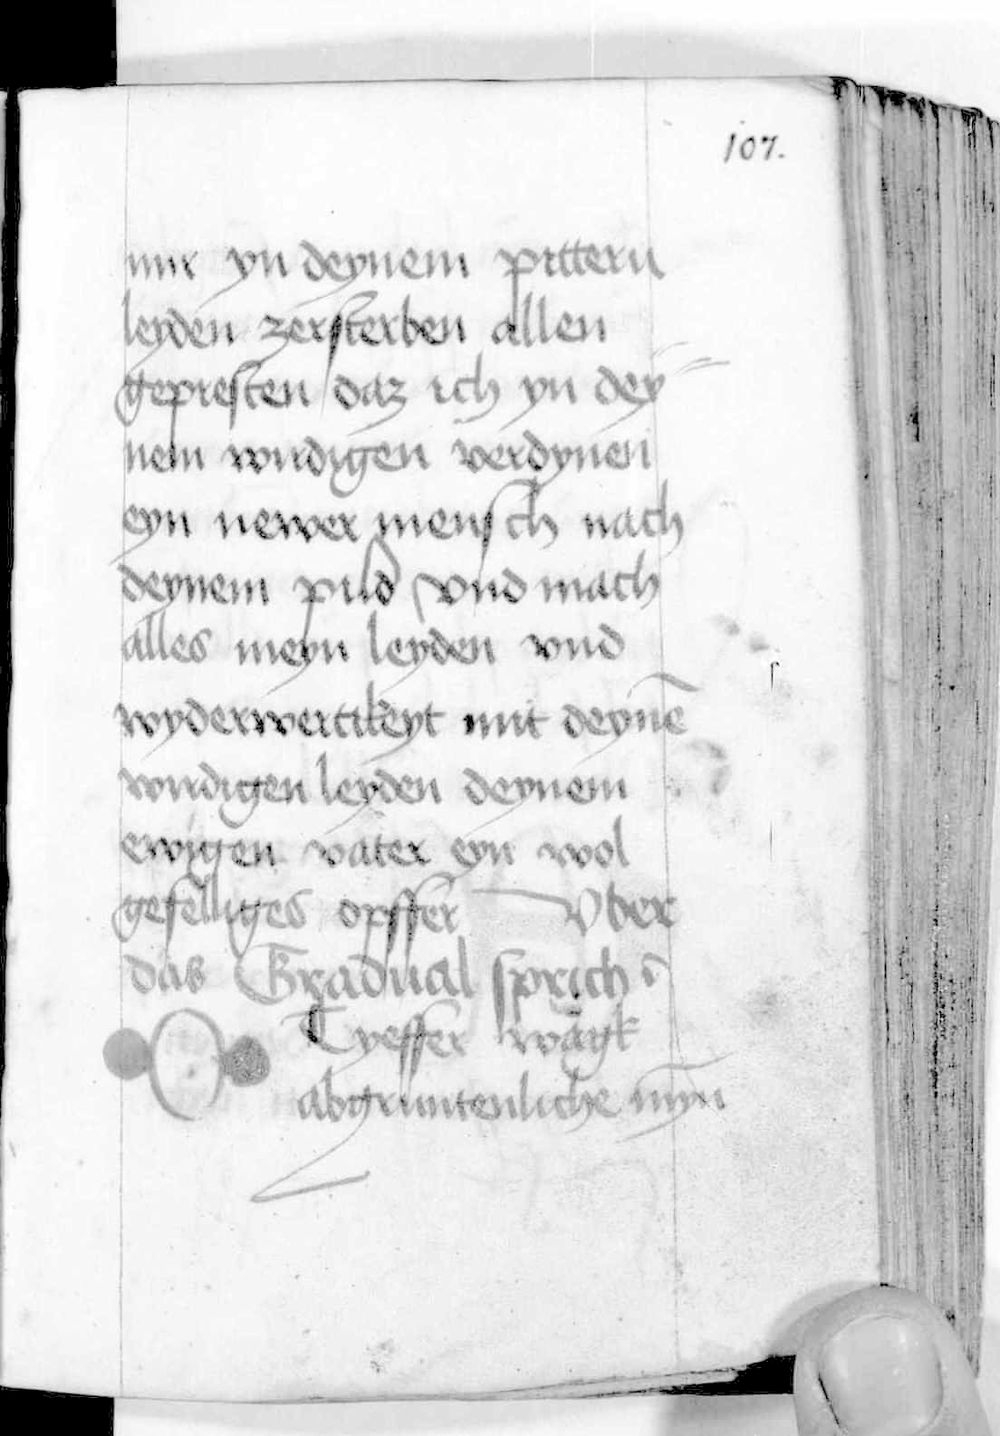 107.
mir yn deynem pittern
leyden zersterben allen
gepresten daz ich yn dey=
nem wirdigen verdynen
eyn newer mensch nach
deynem pild vnd mach
alles meyn leyden vnd
wyderwertikeyt mit deynē
wirdigen leyden deynem
ewigen vater eyn wol
gefelliges opffer Vber
das Gradual sprich
O Tyeffer
abgruntenliche